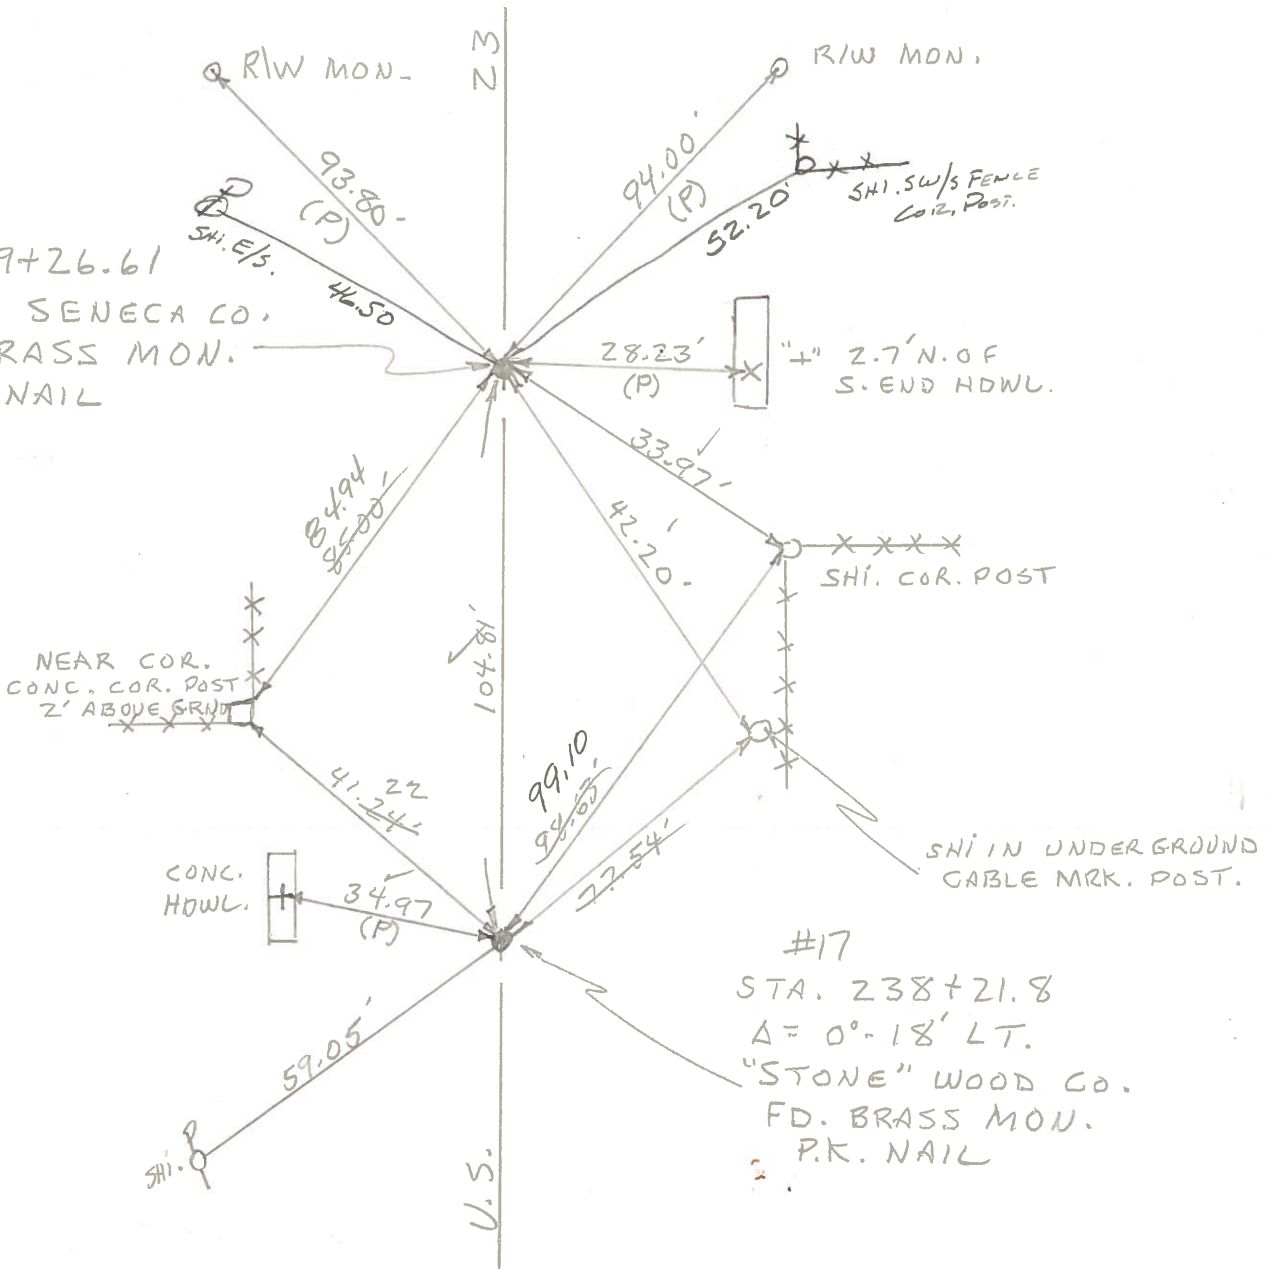 R/W MON.
23
R/W MON.
93.80
(P)
94.00'
(P)
52.20'
SHI. SW/S FENCE
COR. POST.
SHI. E/S.
46.50
9+26.61
SENECA CO.
RASS MON.
NAIL
28.23'
(P)
"+" 2.7' N. OF
S. END HDWL.
33.97'
42.20'
84.94
85.00'
SHI. COR. POST
104.81'
NEAR COR.
CONC. COR. POST
2' ABOVE GRND
41.24'
22
99.10
77.54'
SHI IN UNDERGROUND
CABLE MRK. POST.
CONC.
HDWL.
34.97
(P)
#17
STA. 238+21.8
Δ = 0°-18' LT.
"STONE" WOOD CO.
FD. BRASS MON.
P.K. NAIL
59.05'
SHI.
U.S.